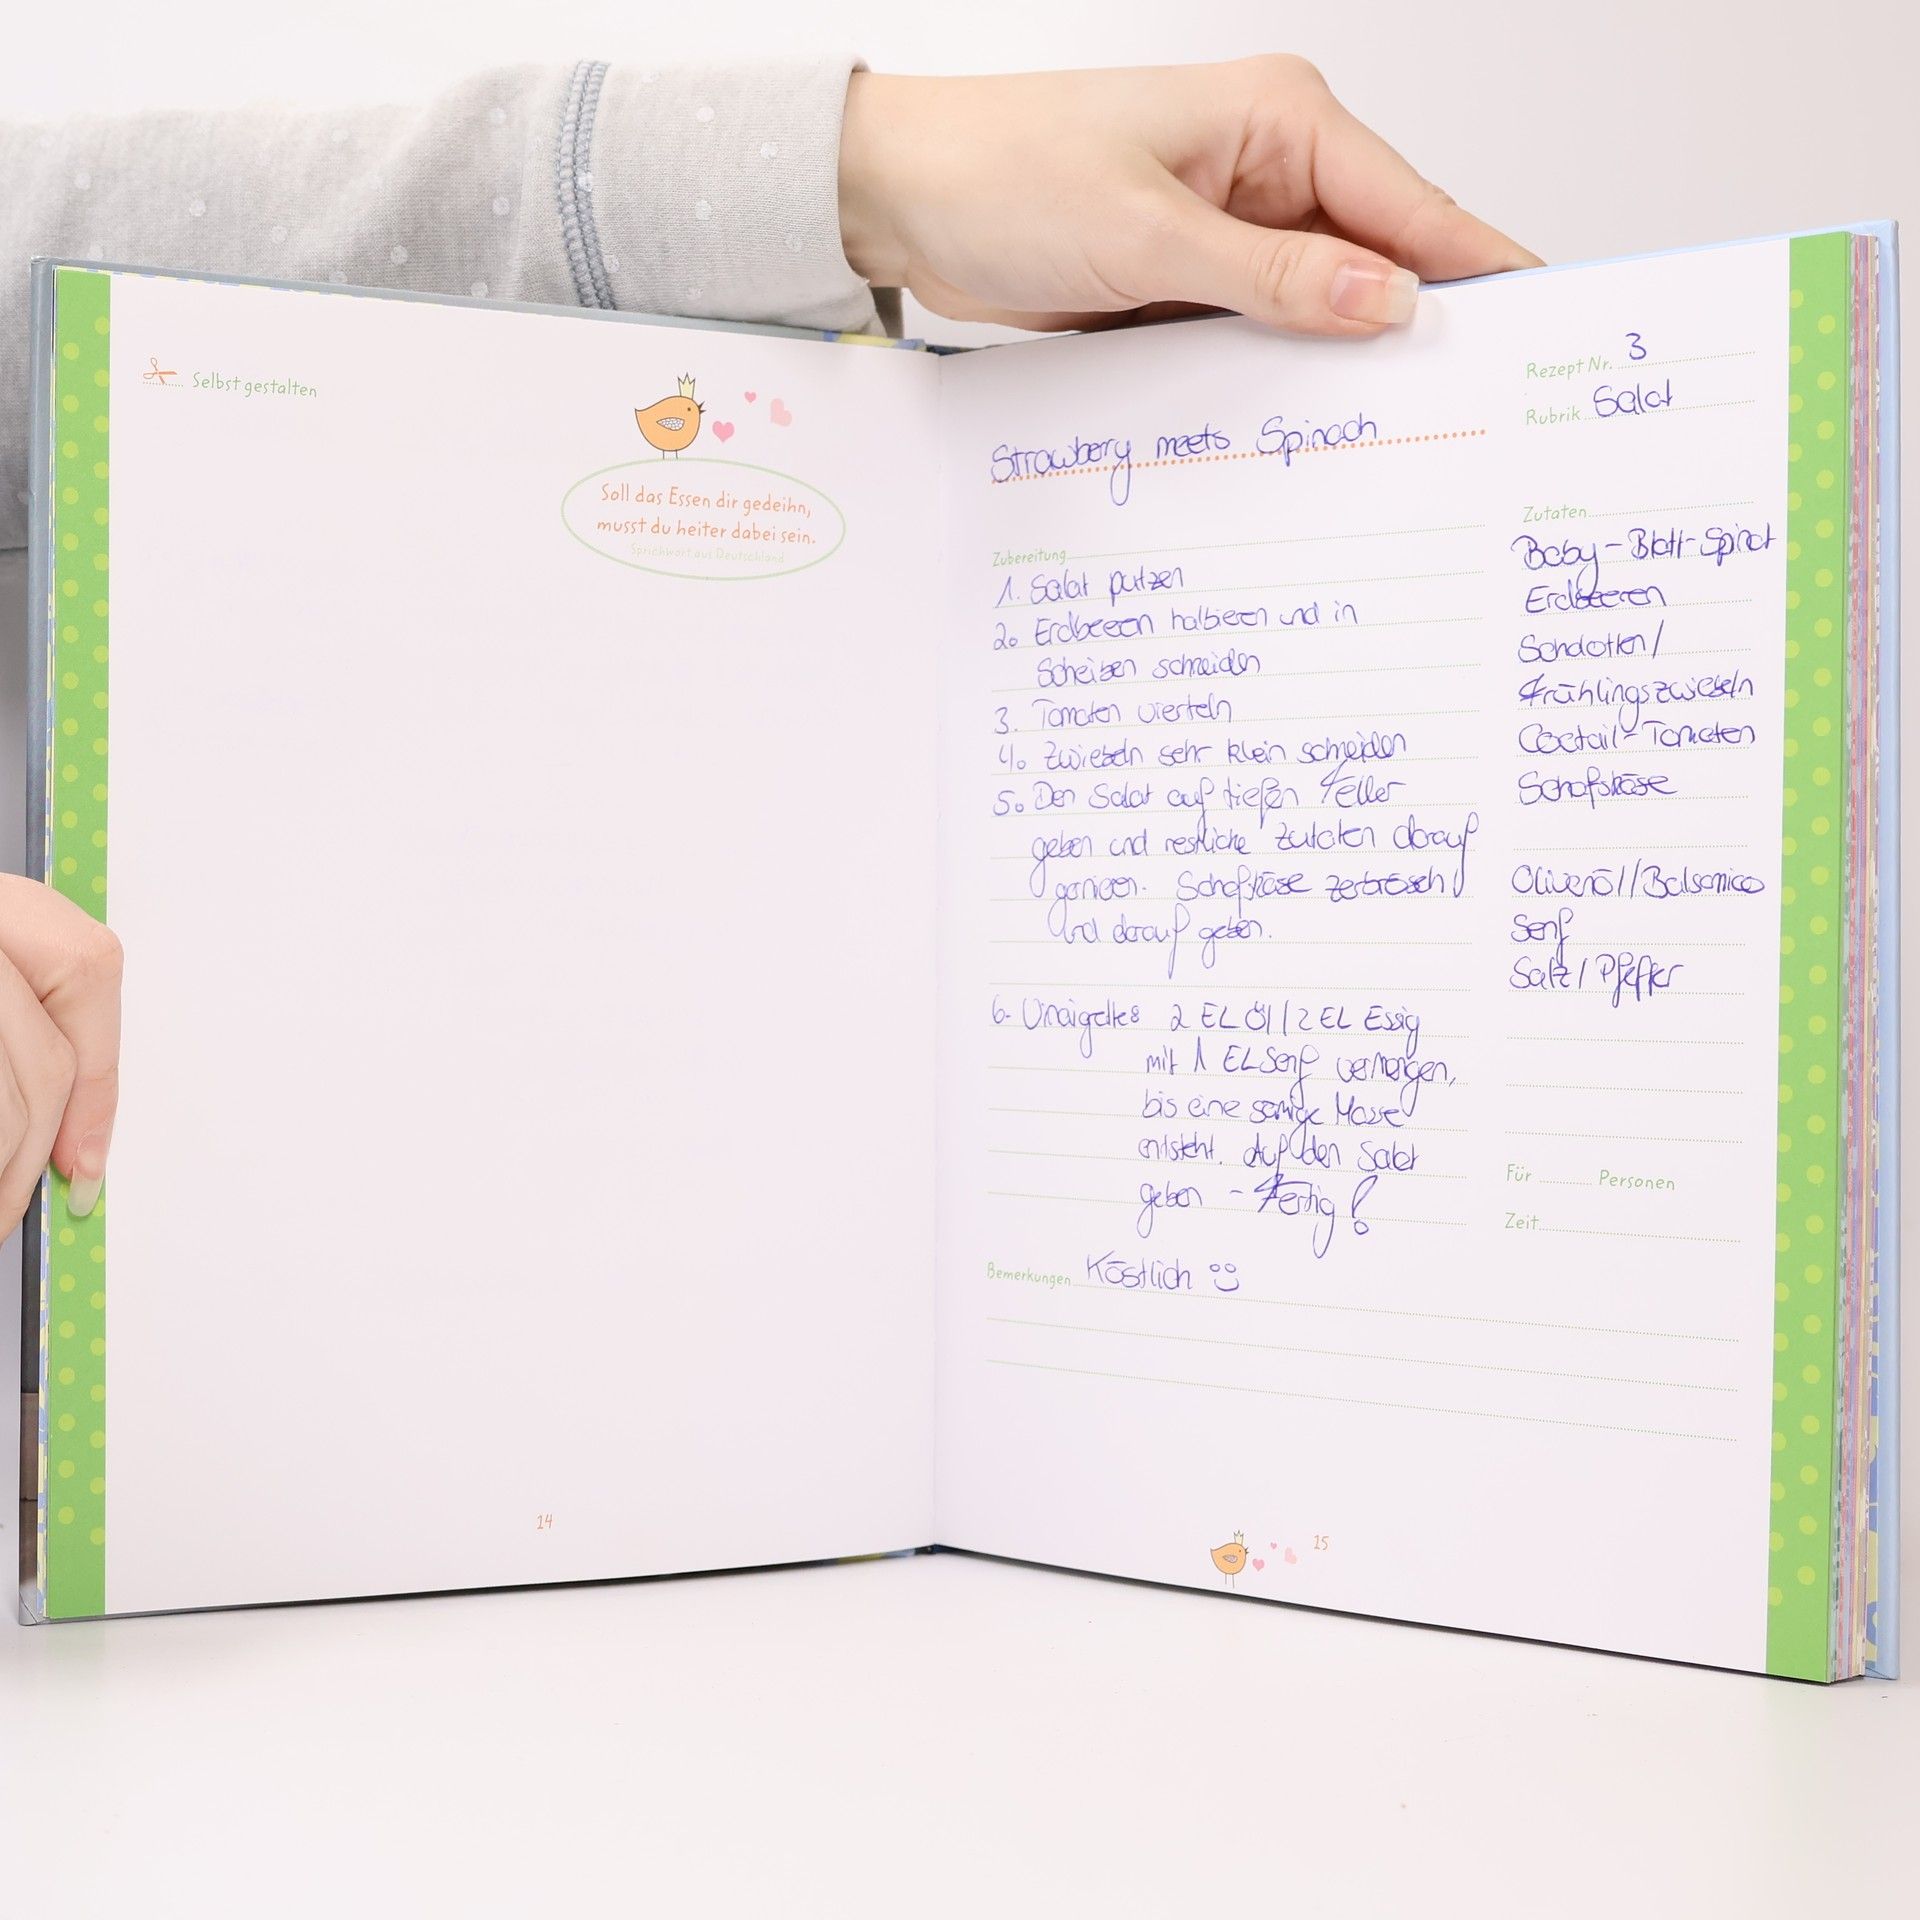 Selbst gestalten
Soll das Essen dir gedeihn,
musst du heiter dabei sein.
Sprichwort aus Deutschland
14
Rezept Nr. 3
Rubrik Salat
Strawberry meets Spinach
Zubereitung
1. Salat putzen
2. Erdbeeren halbieren und in
Scheiben schneiden
3. Tomaten vierteln
4. Zwiebeln sehr klein schneiden
5. Den Salat auf tiefen Teller
geben und restliche Zutaten darauf
garnieren. Schafskäse zerbröseln
und darauf geben.
6. Vinaigrette: 2 EL Öl / 2 EL Essig
mit 1 EL Senf vermengen,
bis eine sämige Masse
entsteht. Auf den Salat
geben - Fertig!
Zutaten
Baby-Blatt-Spinat
Erdbeeren
Schalotten/
Frühlingszwiebeln
Coctail-Tomaten
Schafskäse
Olivenöl/Balsamico
Senf
Salz/Pfeffer
Für Personen
Zeit
Bemerkungen Köstlich
15